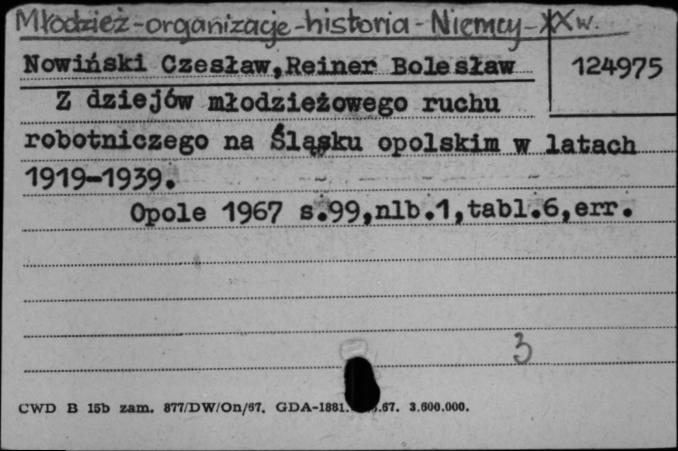 Młodzież-organizacje-historia-Niemcy-XXw.
Nowiński Czesław,Reiner Bolesław 124975
Z dziejów młodzieżowego ruchu
robotniczego na Śląsku opolskim w latach
1919-1939.
Opole 1967 s.99,nlb.1,tabl.6,err.
3
CWD B 15b zam. 877/DW/On/67. GDA-1881. .67. 3.600.000.